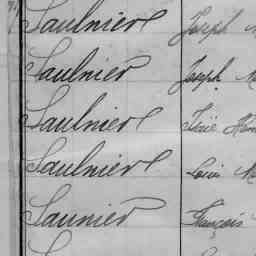 Saulnier Joseph
Saulnier Joseph
Saulnier
Saulnier Louis
Saunier François